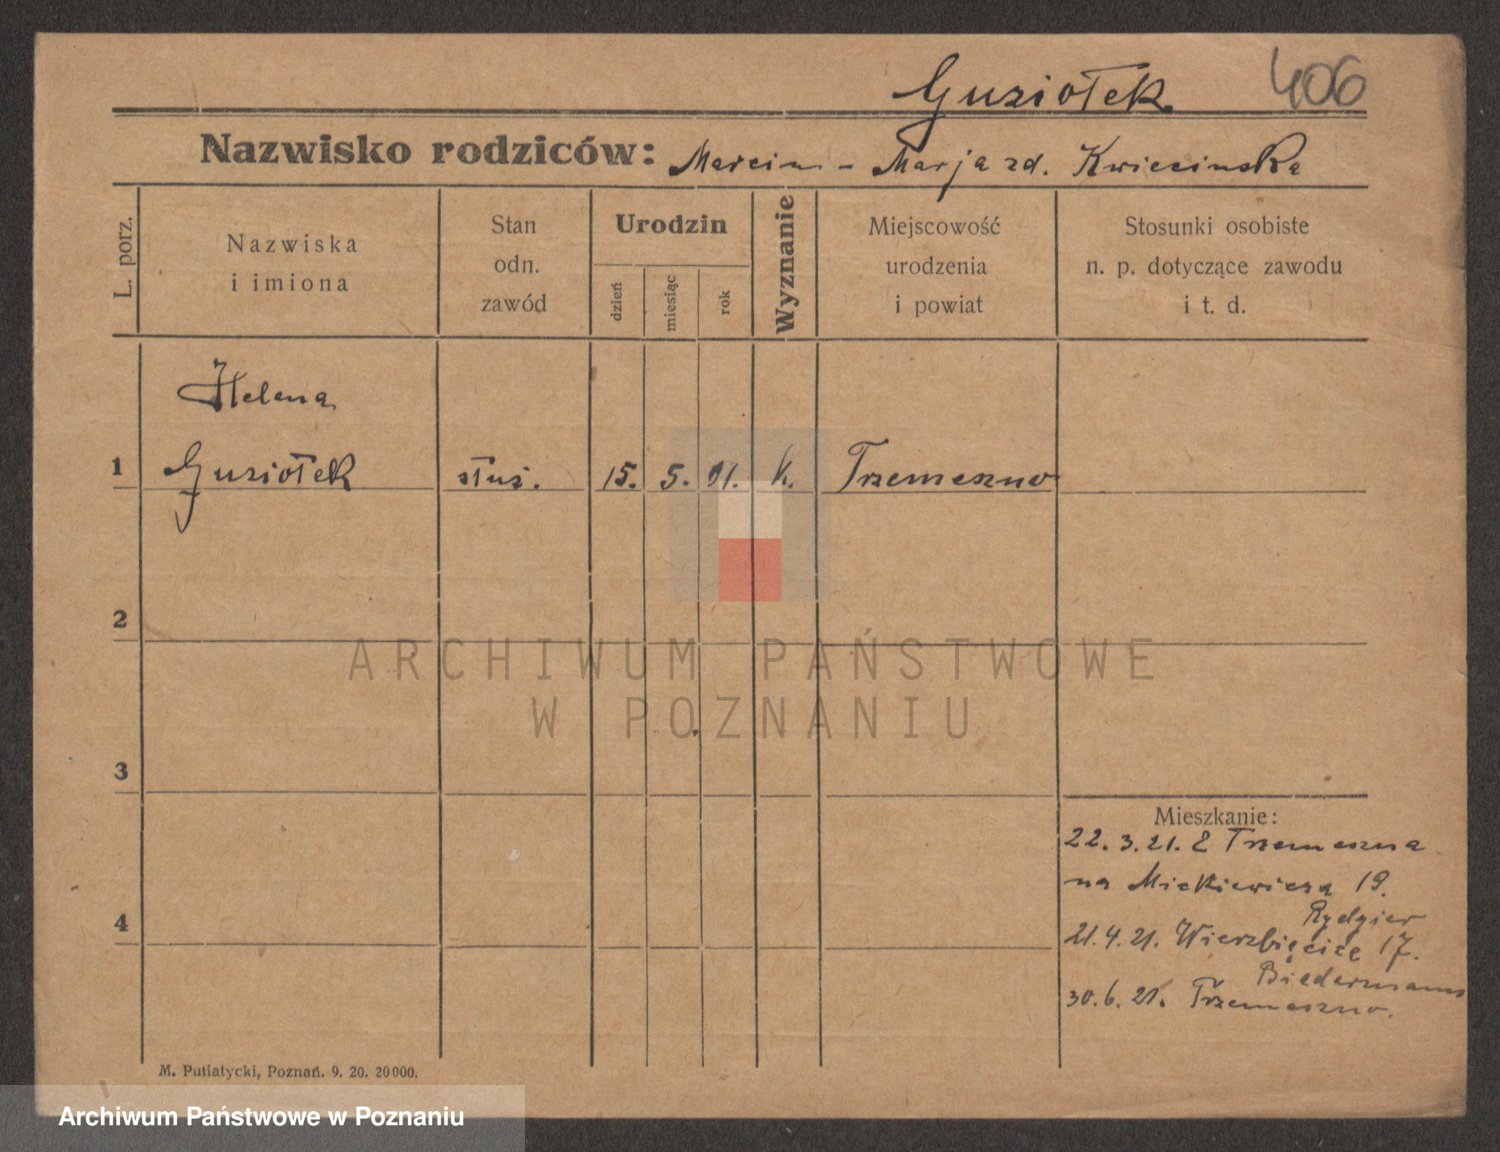 Guziołek 406
Nazwisko rodziców: Marcin - Marja zd. Kwiecinska
L. porz.
Nazwiska
i imiona
Stan
odn.
zawód
Urodzin
dzień
miesiąc
rok
Wyznanie
Miejscowość
urodzenia
i powiat
Stosunki osobiste
n. p. dotyczące zawodu
i t. d.
Helena
1 Guziołek służ. 15. 5. 01. k. Trzemeszno
2
ARCHIWUM PAŃSTWOWE
W POZNANIU
3
Mieszkanie:
22. 3. 21. Z Trzemeszna
na Mickiewicza 19.
Rydgier
4
21. 4. 21. Wierzbięcice 17.
Biedermann
30. 6. 21. Trzemeszno.
M. Putiatycki, Poznań. 9. 20. 20000.
Archiwum Państwowe w Poznaniu